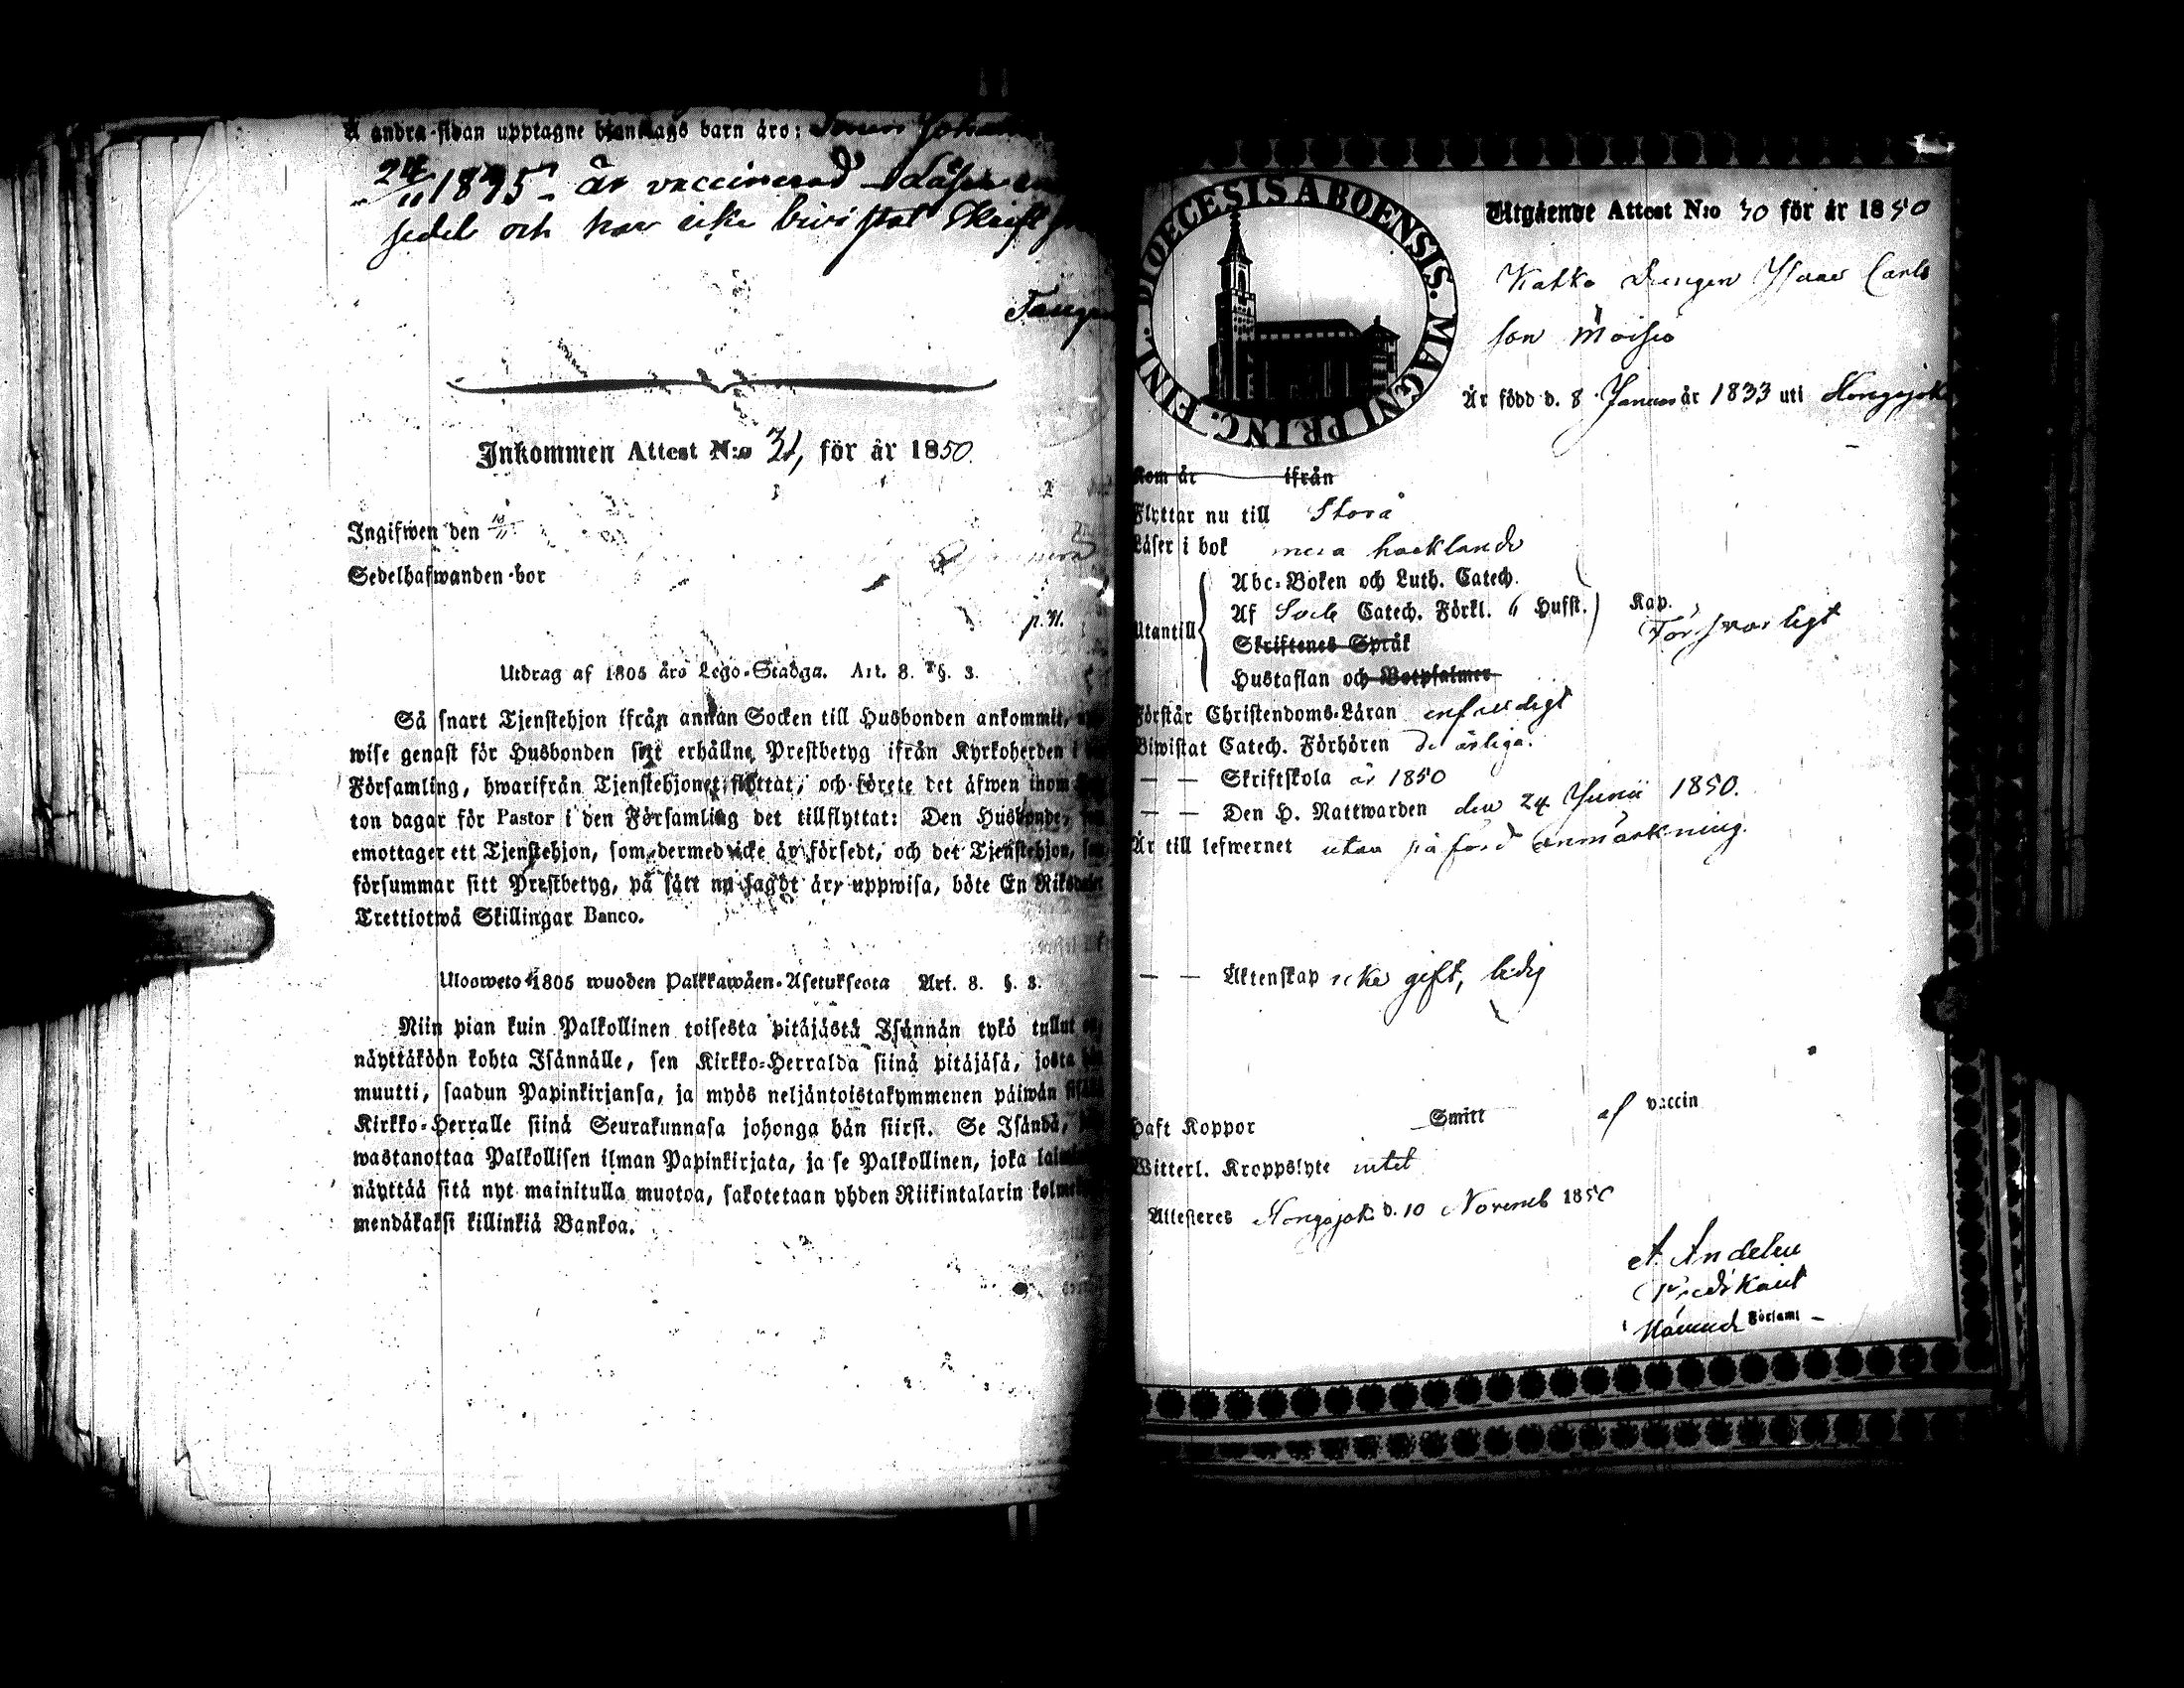 Å andra sidan upptagne hjonelags barn äro: Sonen Johan
24/11 1845 är vaccinerad
sedel och har icke bivistat Skrift
Inkommen Attest N:o 31, för år 1850.
Ingifwen den
Sedelhafwanden bor
p. N.
Utdrag af 1805 års Lego-Stadga. Art. 8. §. 3.
Så snart Tjenstehjon ifrån annan Socken till Husbonden ankommit,
wise genast för Husbonden sitt erhållne Prestbetyg ifrån Kyrkoherden i
Församling, hwarifrån Tjenstehjonet flyttat, och förete det äfwen inom
ton dagar för Pastor i den Församling det tillflyttat: Den Husbonde,
emottager ett Tjenstehjon, som dermed icke är försedt, och det Tjenstehjon,
försummar sitt Prestbetyg, på sätt nu sagdt är, uppwisa, böte En Riksdaler
Trettiotwå Skillingar Banco.
Uloosweto 1805 wuoden Palkkawäen-Asetuksesta Art. 8. §. 3.
Niin pian kuin Palkollinen toisesta pitäjästä Isännän tykö tullut
näyttäköön kohta Isännälle, sen Kirkko-Herralda siinä pitäjäsä, josta
muutti, saadun Papinkirjansa, ja myös neljäntoistakymmenen päiwän
Kirkko-Herralle siinä Seurakunnasa johonga hän siirsi. Se Isändä,
wastanottaa Palkollisen ilman Papinkirjata, ja se Palkollinen, joka
näyttää sitä nyt mainitulla muotoa, sakotetaan yhden Riikintalarin
mendäkaksi killinkiä Bankoa.
DIOECESIS ABOENSIS. MAGNI PRINC. FINL.
Utgående Attest N:o 30 för år 1850
Drengen Isaac Carls
son Moisio
Är född d. 8 Januari år 1833 uti
Kom år ifrån
Flyttar nu till Storå
Läser i bok
Abc-Boken och Luth. Catech.
Af Catech. Förkl. 6 Hufst. Kap.
Utantill Försvarligt
Skriftenes Språk
Hustaflan och Botpsalmer
Förstår Christendoms-Läran enfaldigt
Biwistat Catech. Förhören de årliga.
— — Skriftskola år 1850
— — Den H. Nattwarden den 24 Junii 1850.
Är till lefwernet utan påförd anmärkning.
— — Äktenskap icke gift, ledig
Haft Koppor Smitt af vaccin
Witterl. Kroppslyte intet
Attesteres d. 10 Novemb 1850
A.
Predikant
Församl